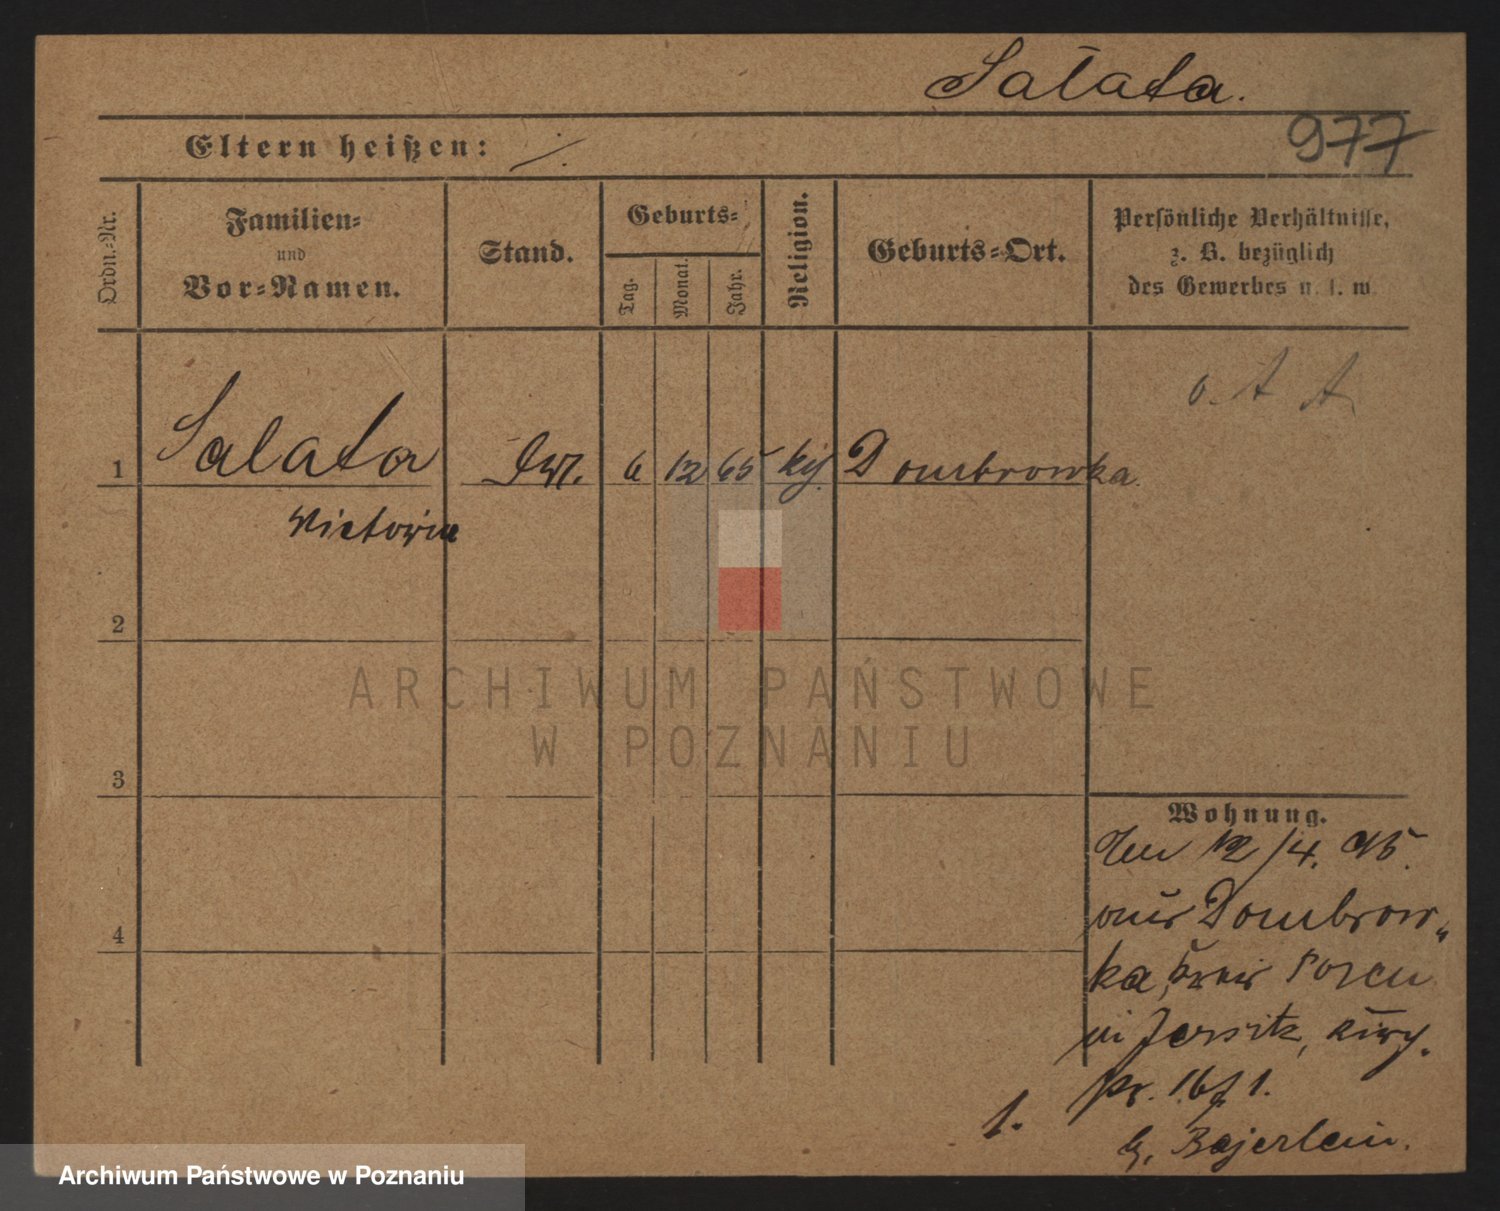 Sałata.
977
Eltern heißen: ./.
Ordn.-Nr.
Familien-
und
Vor-Namen.
Stand.
Geburts-
Tag.
Monat.
Jahr.
Religion.
Geburts-Ort.
Persönliche Verhältnisse,
z. B. bezüglich
des Gewerbes u. s. w.
1 Salata 6 12 65 Dombrowka.
Victoria
2
3
4
Wohnung.
12/4. 95.
aus Dombrow-
ka, Kreis Posen
in Jersitz,
1.
G. Bajerlein.
ARCHIWUM PAŃSTWOWE
W POZNANIU
Archiwum Państwowe w Poznaniu